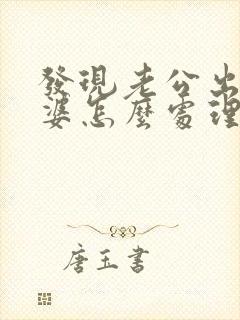 發現老公出
婆怎麼處理
唐玉書